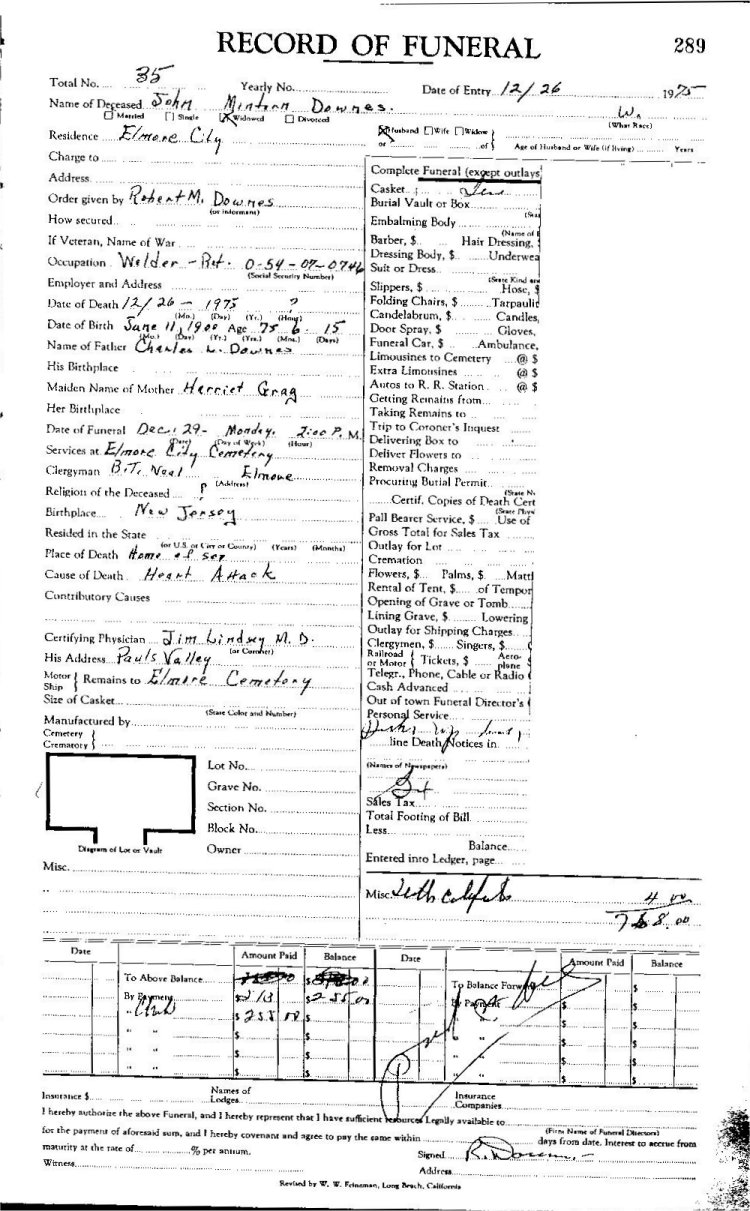 RECORD OF FUNERAL 289
Total No. 35 Yearly No. Date of Entry 12/26 1975
Name of Deceased John Downes.
Married Single Widowed Divorced
W.
(What Race)
Residence Elmore City
Husband Wife Widow
or of Age of Husband or Wife (if living) Years
Charge to
Address
Order given by Robert M. Downes
(or Informant)
How secured
If Veteran, Name of War
Occupation Welder - Ret. 0-54-07-0746
(Social Security Number)
Employer and Address
Date of Death 12/26 - 1975 ?
(Mo.) (Day) (Yr.) (Hour)
Date of Birth June 11, 1900 Age 75 6 15
(Mo.) (Day) (Yr.) (Yrs.) (Mos.) (Days)
Name of Father Charles L. Downes
His Birthplace
Maiden Name of Mother Harriet Grag
Her Birthplace
Date of Funeral Dec. 29 - Monday. 2:00 P. M.
(Date) (Day of Week) (Hour)
Services at Elmore City Cemetery
Clergyman B.T. Neal Elmore
(Address)
Religion of the Deceased P
Birthplace New Jersey
Resided in the State
(or U.S. or City or County) (Years) (Months)
Place of Death Home of
Cause of Death Heart Attack
Contributory Causes
Certifying Physician Jim Lindsey M. D.
(or Coroner)
His Address Pauls Valley
Motor
Ship
Remains to Elmore Cemetery
Size of Casket
(State Color and Number)
Manufactured by
Cemetery
Crematory
Lot No.
Grave No.
Section No.
Block No.
Diagram of Lot or Vault Owner
Misc.
Complete Funeral (except outlays)
Casket
Burial Vault or Box
Embalming Body
(Name of
Barber, $ Hair Dressing, $
Dressing Body, $ Underwea
Suit or Dress
(State Kind and
Slippers, $ Hose, $
Folding Chairs, $ Tarpaulin
Candelabrum, $ Candles,
Door Spray, $ Gloves,
Funeral Car, $ Ambulance,
Limousines to Cemetery @ $
Extra Limousines @ $
Autos to R. R. Station @ $
Getting Remains from
Taking Remains to
Trip to Coroner's Inquest
Delivering Box to
Deliver Flowers to
Removal Charges
Procuring Burial Permit
Certif. Copies of Death Cert
(State Phys
Pall Bearer Service, $ Use of
Gross Total for Sales Tax
Outlay for Lot
Cremation
Flowers, $ Palms, $ Matt
Rental of Tent, $ of Tempor
Opening of Grave or Tomb
Lining Grave, $ Lowering
Outlay for Shipping Charges
Clergymen, $ Singers, $
Railroad
or Motor
Tickets, $ Aero-
plane
Telegr., Phone, Cable or Radio
Cash Advanced
Out of town Funeral Director's
Personal Service
line Death Notices in
(Names of Newspapers)
Sales Tax
Total Footing of Bill
Less
Balance
Entered into Ledger, page
Misc. 4 00
Date Amount Paid Balance Date Amount Paid Balance
To Above Balance To Balance Forward
By Payment By Payment
Insurance $ Names of
Lodges
Insurance
Companies
I hereby authorize the above Funeral, and I hereby represent that I have sufficient resources Legally available to
(Firm Name of Funeral Directors)
for the payment of aforesaid sum, and I hereby covenant and agree to pay the same within days from date. Interest to accrue from
maturity at the rate of % per annum.
Signed
Witness Address
Revised by W. W. Feineman, Long Beach, California